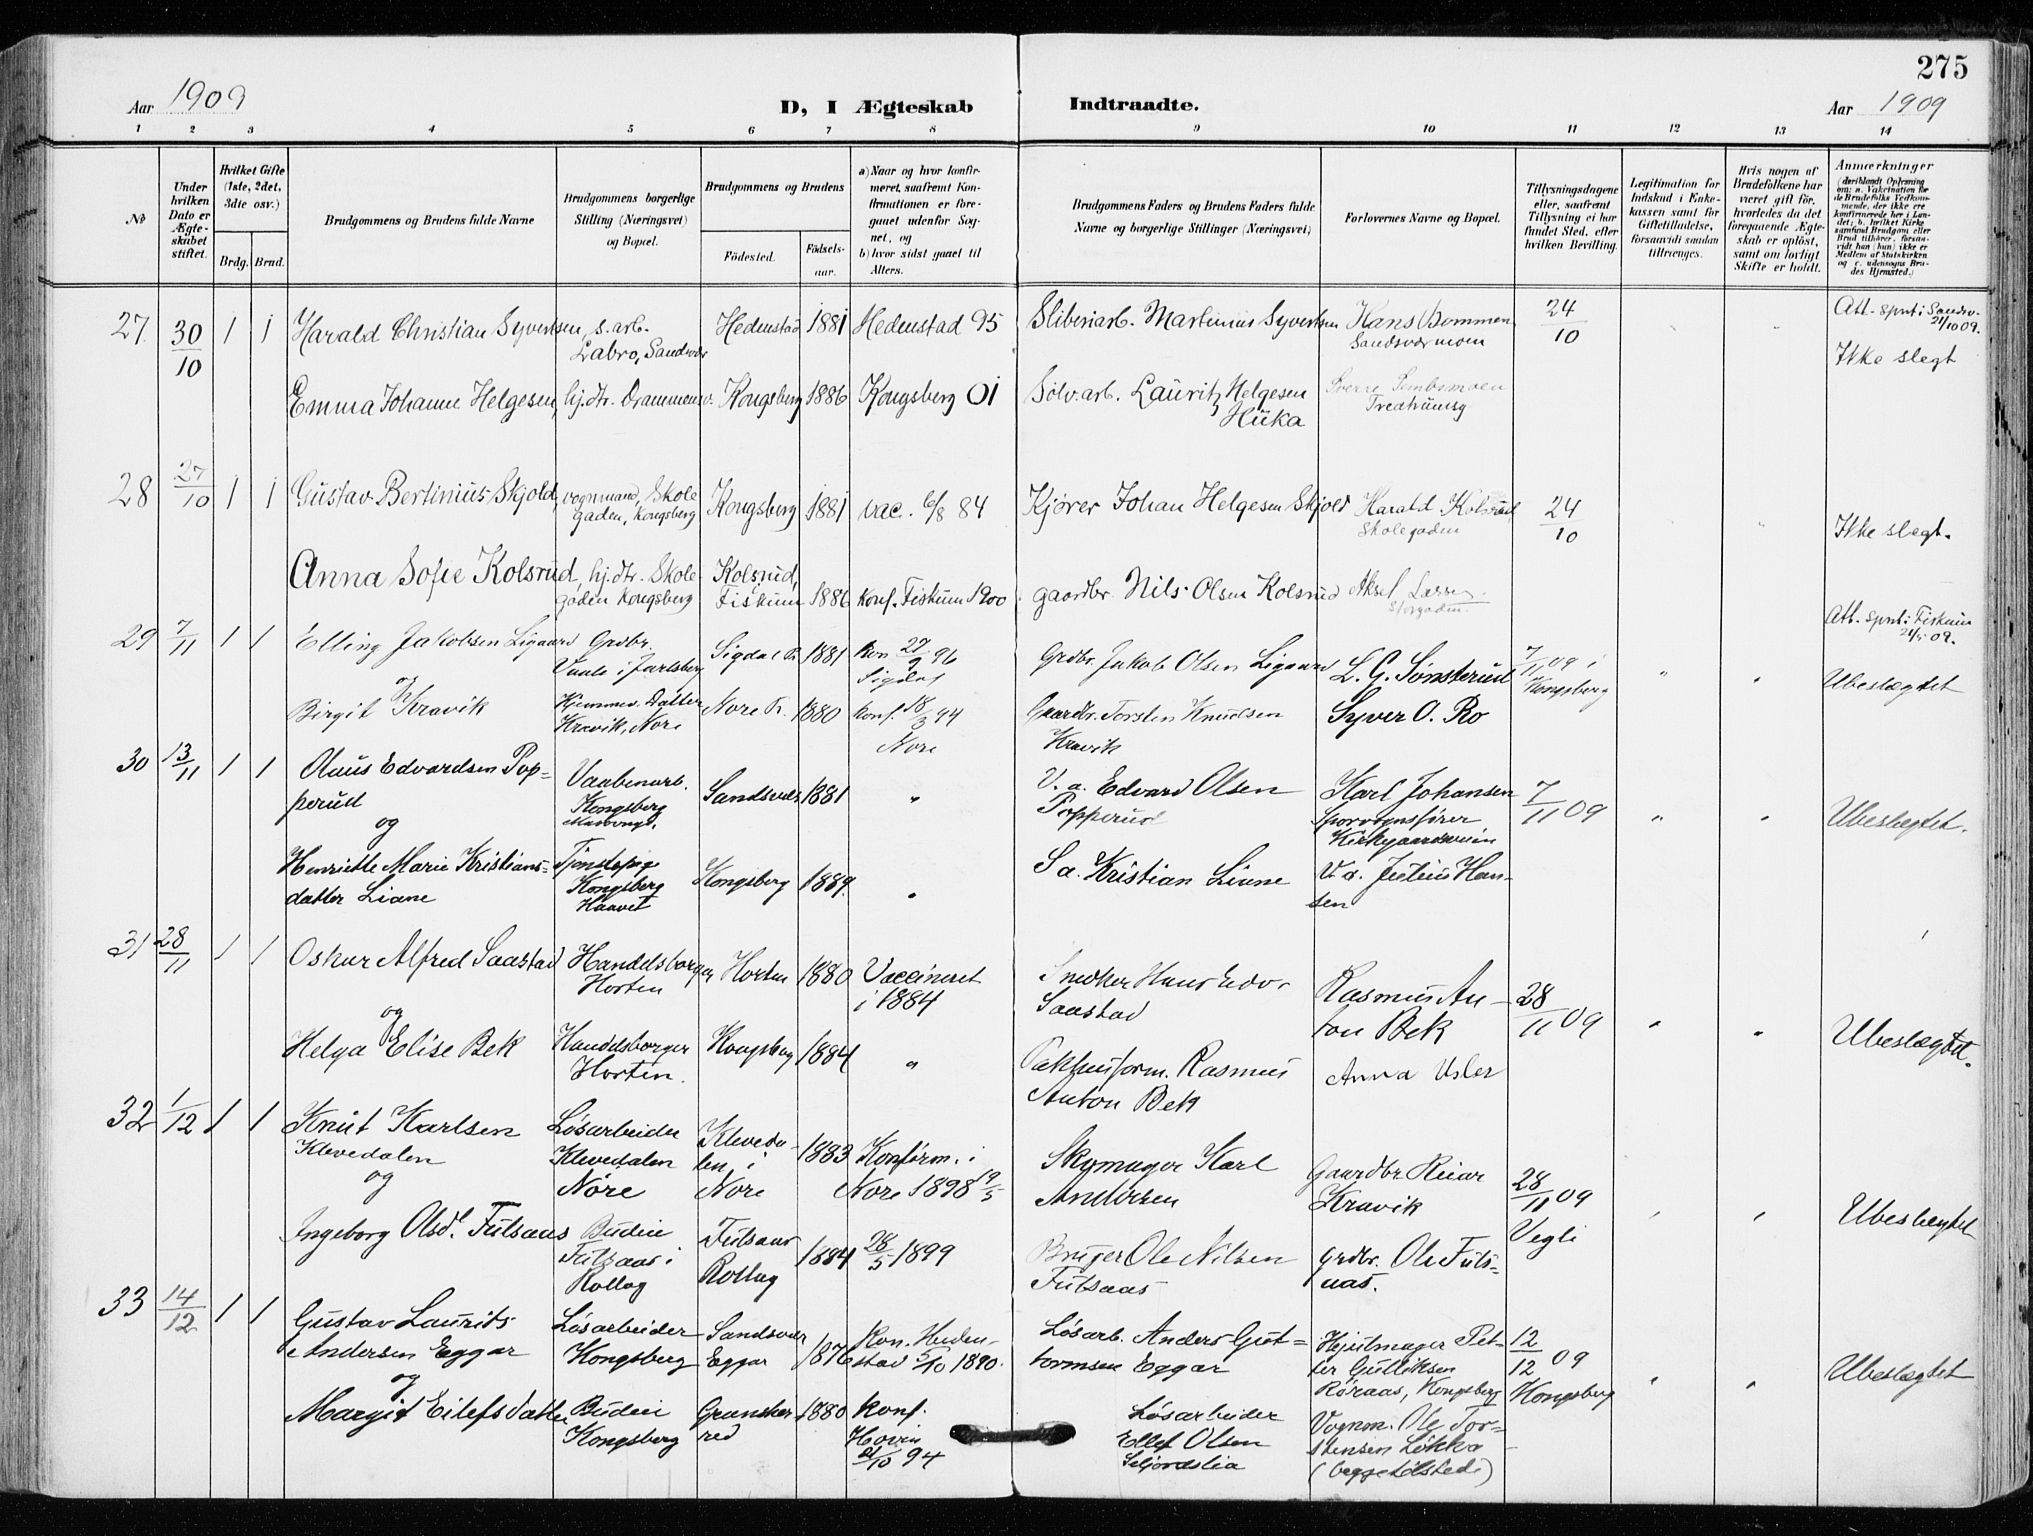 275
Aar 1909
D, I Ægteskab Indtraadte.
Aar 1909
1 2 3 4 5 6 7 8 9 10 11 12 13 14
No
Under hvilken Dato er Ægteskabet stiftet.
Hvilket Gifte (1ste, 2det, 3die osv.)
Brdg. Brud.
Brudgommens og Brudens fulde Navne
Brudgommens borgerlige Stilling (Næringsvei) og Bopæl.
Brudgommens og Brudens
Födested. Födselsaar.
a) Naar og hvor konfirmeret, saafremt Konfirmationen er foregaaet udenfor Sognet, og
b) hvor sidst gaaet til Alters.
Brudgommens Faders og Brudens Faders fulde Navne og borgerlige Stillinger (Næringsvei)
Forlovernes Navne og Bopæl.
Tillysningsdagene eller, saafremt Tillysning ei har fundet Sted, efter hvilken Bevilling.
Legitimation for Indskud i Enkekassen samt for Giftetilladelse, forsaavidt saadan tiltrænges.
Hvis nogen af Brudefolkene har været gift för, hvorledes da det foregaaende Ægteskab er oplöst, samt om lovligt Skifte er holdt.
Anmærkninger
27 30/10 1 1 Harald Christian Syvertsen, s. arb. Hedenstad 1881 Hedenstad 95 Sliberiarb. Martinius Syvertsen Hans Bommen 24/10 Att. spnt. i Sandsv. 21/10 09.
Labro, Sandsvær Sandsværmoen Ikke slegt
Emma Johanne Helgesen, hj.dtr. Drammensv. Kongsberg 1886 Kongsberg 01 Sølv.arb. Lauritz Helgesen Sverre
Huka
28 27/10 1 1 Gustav Bertinius Skjold, vognmand, Skole Kongsberg 1881 vac. 6/8 84 Kjører Johan Helgesen Skjold Harald Kolsrud 24/10
gaden, Kongsberg Skolegaden Ikke slegt.
Anna Sofie Kolsrud, hj.dtr. Skole- Kolsrud,
gaden Kongsberg Fiskum 1886 konf. Fiskum 1900 gaardbr. Nils Olsen Kolsrud Aksel Larsen
Storgaden. Att. spnt. i Fiskum
29 7/11 1 1 Elling Jakobsen Ligaard Grdbr. Sigdal P. 1881 kon 27/9 96 Grdbr. Jakob Olsen Ligaard L. G. Sønsterud 7/11 09 i
Vaale i Jarlsberg Sigdal Kongsberg Ubeslægtet
Birgit Kravik Hjemmev. Datter Nore P. 1880 konf. 18/3 94 Gaardbr. Torsten Knudsen Syver O. Ro
Kravik, Nore Nore Kravik
30 13/11 1 1 Olaus Edvardsen Pop- Vaabenarb. Sandsvær 1881 " V. a. Edvard Olsen Karl Johansen 7/11 09 " " Ubeslægtet.
perud Kongsberg Popperud Sporvognsfører
og Kirkgaardsveien
Henriette Marie Kristians- Tjenstepige Kongsberg 1889. " S a. Kristian Liane V. a. Julius Han-
datter Liane Kongsberg sen
Haavet
31 28/11 1 1 Oskar Alfred Saastad Handelsborger Horten 1880 Vaccineret Snedker Hans Edv. Rasmus An- 28/11 09
Horten i 1884 Saastad ton Bek
og
Helga Elise Bek Handelsborger Kongsberg 1884 " Pakhusform. Rasmus Anna Usler Ubeslægtet.
Horten. Anton Bek
32 1/12 1 1 Knut Karlsen Løsarbeider Kleveda- 1883 Konfirm. i Skomager Karl Gaardbr. Reiar 28/11 09
Klevedalen Klevedalen len i Nore 1898 Andersen Kravik Vegli
og Nore Nore
Ingeborg Olsd. Fulsaas Budeie Fulsaas 1884 28/5 1899 Bruger Ole Nilsen grdbr. Ole Fuls- Ubeslegtet
Fulsaas i Rollag Fulsaas aas.
Rollag
33 14/12 1 1 Gustav Laurits Løsarbeider Sandsvær 1876 Kon. Heden- Løsarb. Anders Gut- Hjulmager Pet- 12/12 09
Andersen Eggar Kongsberg Eggar stad 5/10 1890. tormsen Eggar ter Gulliksen Kongsberg Ubeslægtet
og Røraas, Kongsberg
Margit Eilefsdatter Budeie Gransher- 1880 konf. Løsarbeider Vognm. Ole Tor-
Kongsberg red Hovin Ellef Olsen stensen Løkka
94 Seljordslia (begge tilstede)